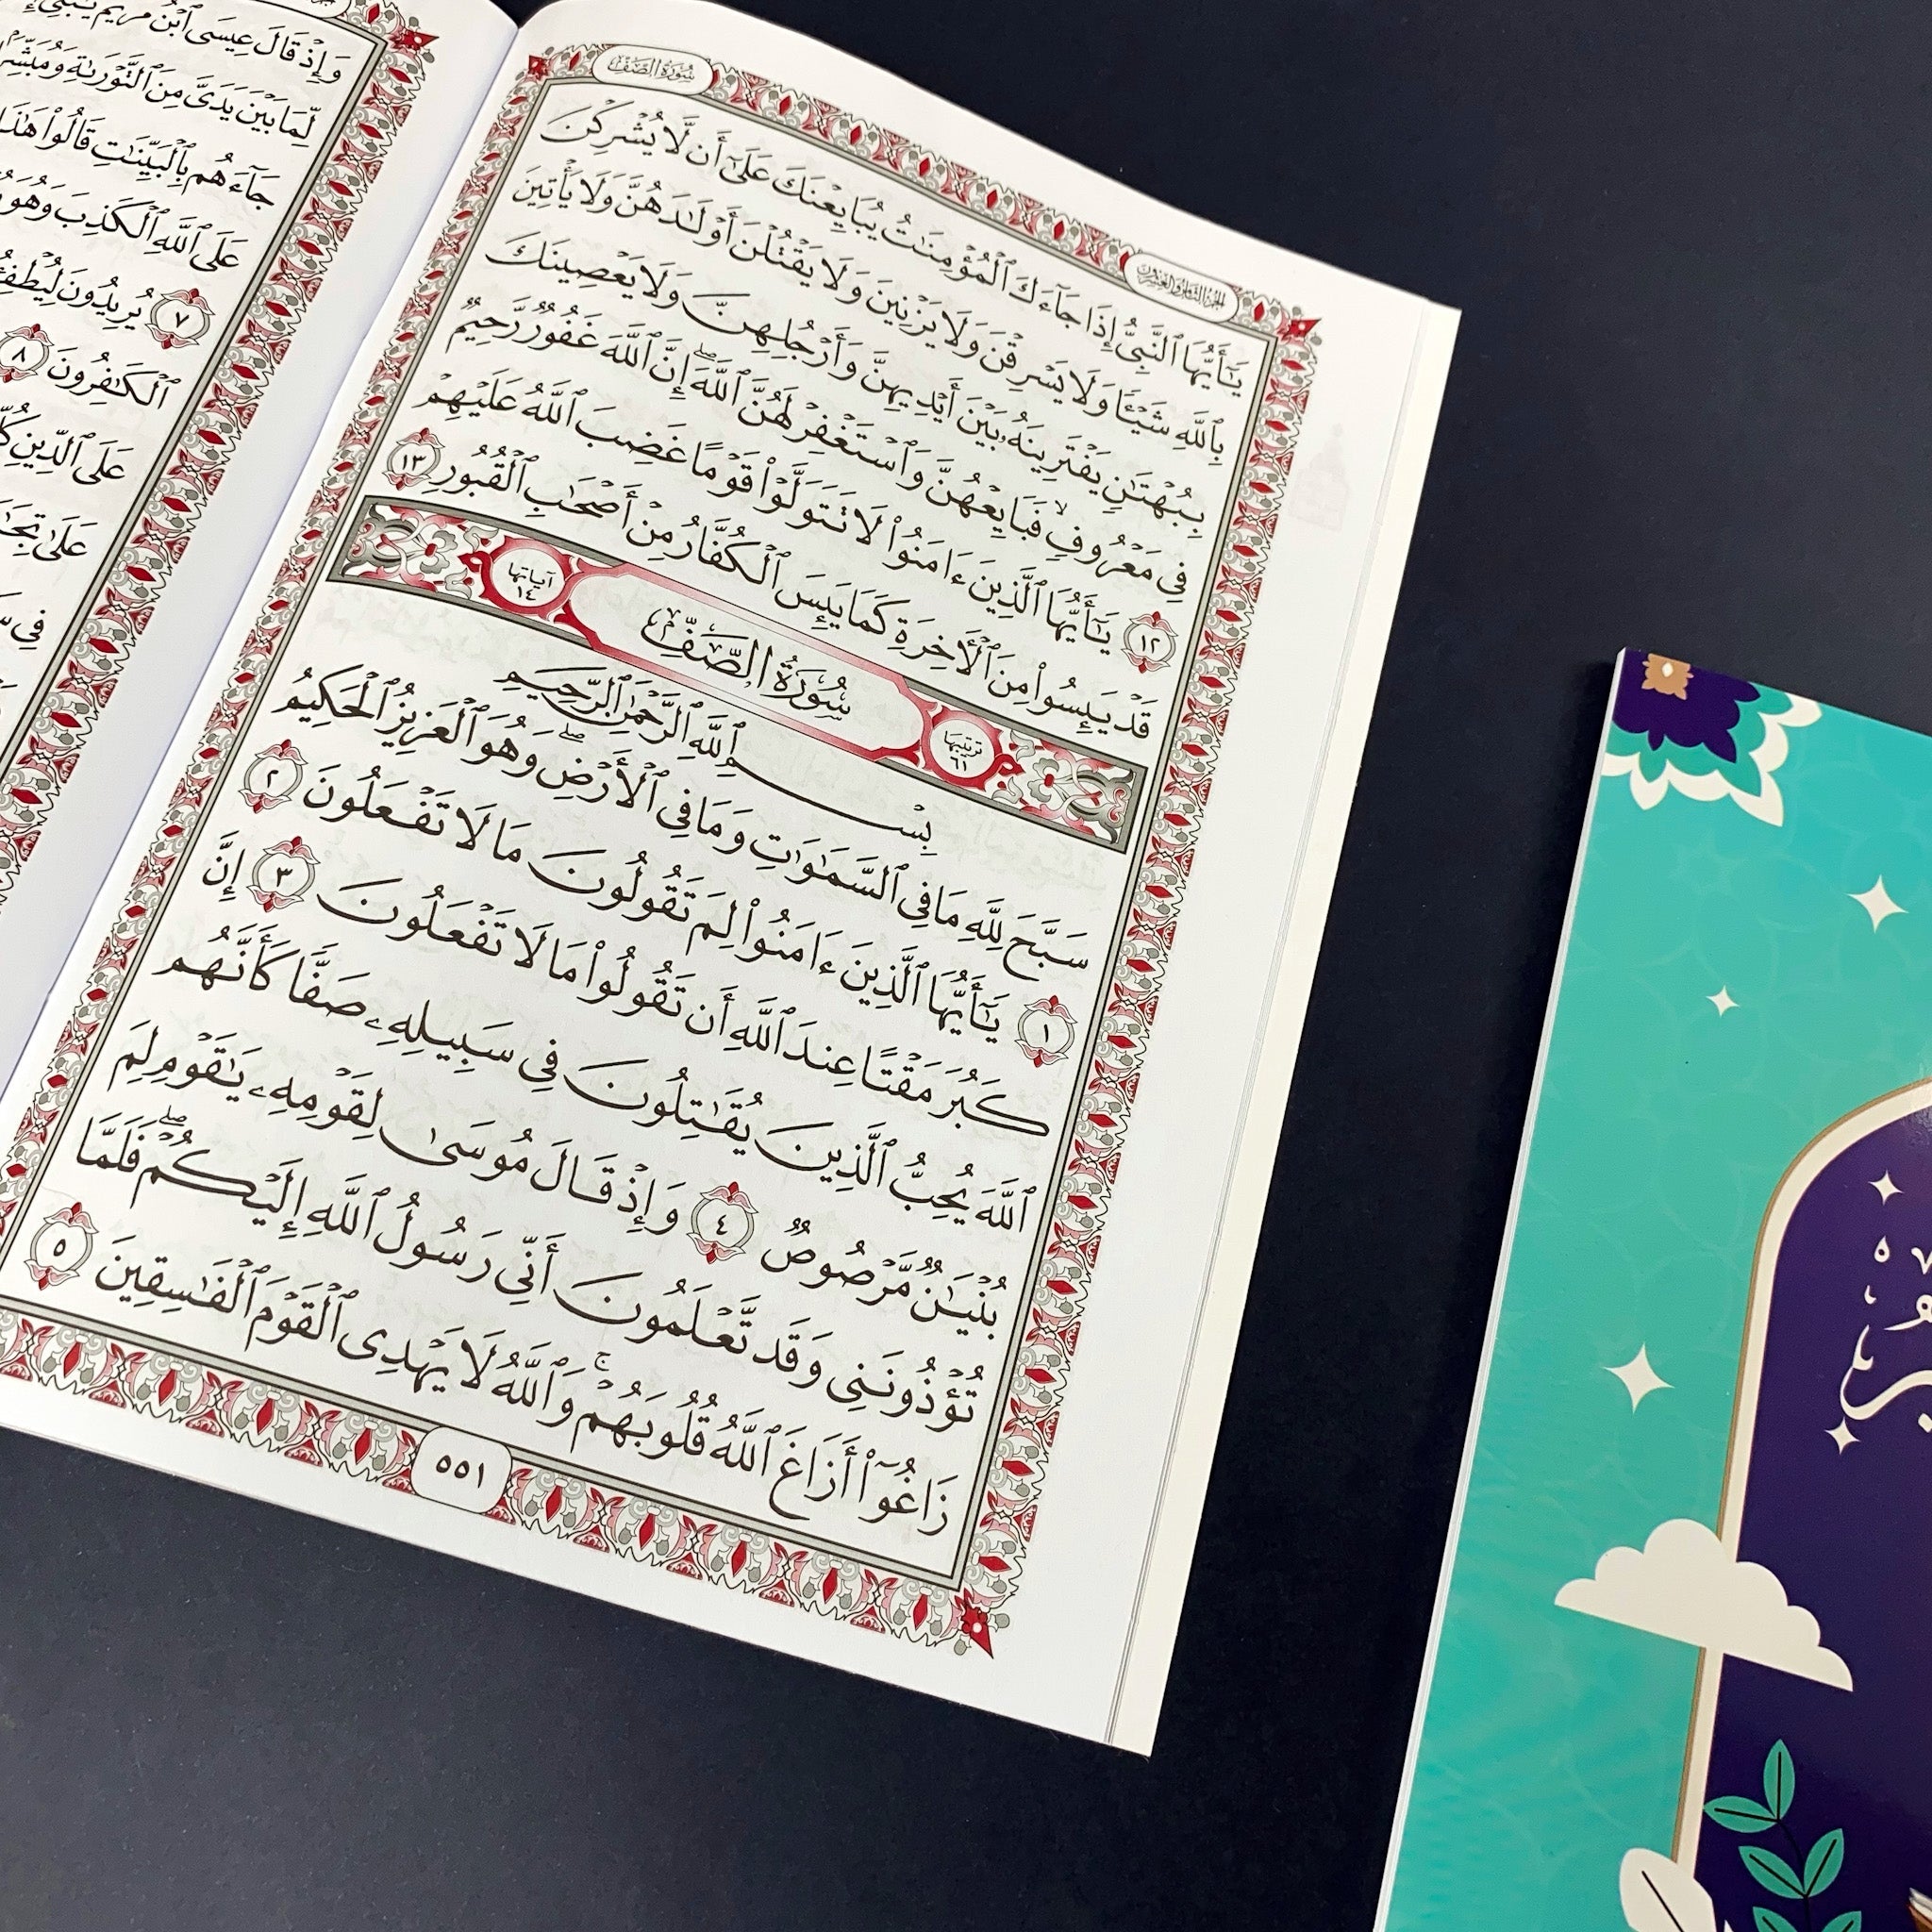 سُورَةُ الصَّفِّ
الجُزْءُ الثَّامِنُ وَالعِشْرُونَ
يَٰٓأَيُّهَا ٱلنَّبِىُّ إِذَا جَآءَكَ ٱلْمُؤْمِنَٰتُ يُبَايِعْنَكَ عَلَىٰٓ أَن لَّا يُشْرِكْنَ
بِٱللَّهِ شَيْـًٔا وَلَا يَسْرِقْنَ وَلَا يَزْنِينَ وَلَا يَقْتُلْنَ أَوْلَٰدَهُنَّ وَلَا يَأْتِينَ
بِبُهْتَٰنٍ يَفْتَرِينَهُۥ بَيْنَ أَيْدِيهِنَّ وَأَرْجُلِهِنَّ وَلَا يَعْصِينَكَ
فِى مَعْرُوفٍ ۙ فَبَايِعْهُنَّ وَٱسْتَغْفِرْ لَهُنَّ ٱللَّهَ ۖ إِنَّ ٱللَّهَ غَفُورٌ رَّحِيمٌ
١٢ يَٰٓأَيُّهَا ٱلَّذِينَ ءَامَنُوا۟ لَا تَتَوَلَّوْا۟ قَوْمًا غَضِبَ ٱللَّهُ عَلَيْهِمْ
قَدْ يَئِسُوا۟ مِنَ ٱلْـَٔاخِرَةِ كَمَا يَئِسَ ٱلْكُفَّارُ مِنْ أَصْحَٰبِ ٱلْقُبُورِ ١٣
ترتيبها ٦١ سُورَةُ الصَّفِّ آياتها ١٤
بِسْمِ ٱللَّهِ ٱلرَّحْمَٰنِ ٱلرَّحِيمِ
سَبَّحَ لِلَّهِ مَا فِى ٱلسَّمَٰوَٰتِ وَمَا فِى ٱلْأَرْضِ ۖ وَهُوَ ٱلْعَزِيزُ ٱلْحَكِيمُ
١ يَٰٓأَيُّهَا ٱلَّذِينَ ءَامَنُوا۟ لِمَ تَقُولُونَ مَا لَا تَفْعَلُونَ ٢
كَبُرَ مَقْتًا عِندَ ٱللَّهِ أَن تَقُولُوا۟ مَا لَا تَفْعَلُونَ ٣ إِنَّ
ٱللَّهَ يُحِبُّ ٱلَّذِينَ يُقَٰتِلُونَ فِى سَبِيلِهِۦ صَفًّا كَأَنَّهُم
بُنْيَٰنٌ مَّرْصُوصٌ ٤ وَإِذْ قَالَ مُوسَىٰ لِقَوْمِهِۦ يَٰقَوْمِ لِمَ
تُؤْذُونَنِى وَقَد تَّعْلَمُونَ أَنِّى رَسُولُ ٱللَّهِ إِلَيْكُمْ ۖ فَلَمَّا
زَاغُوٓا۟ أَزَاغَ ٱللَّهُ قُلُوبَهُمْ ۚ وَٱللَّهُ لَا يَهْدِى ٱلْقَوْمَ ٱلْفَٰسِقِينَ ٥
٥٥١
وَإِذْ قَالَ عِيسَى ٱبْنُ مَرْيَمَ يَٰبَنِىٓ
لِّمَا بَيْنَ يَدَىَّ مِنَ ٱلتَّوْرَىٰةِ وَمُبَشِّرًۢا
جَآءَهُم بِٱلْبَيِّنَٰتِ قَالُوا۟ هَٰذَا
عَلَى ٱللَّهِ ٱلْكَذِبَ وَهُوَ
٧ يُرِيدُونَ لِيُطْفِـُٔوا۟
ٱلْكَٰفِرُونَ ٨
عَلَى ٱلدِّينِ
عَلَىٰ
فِى